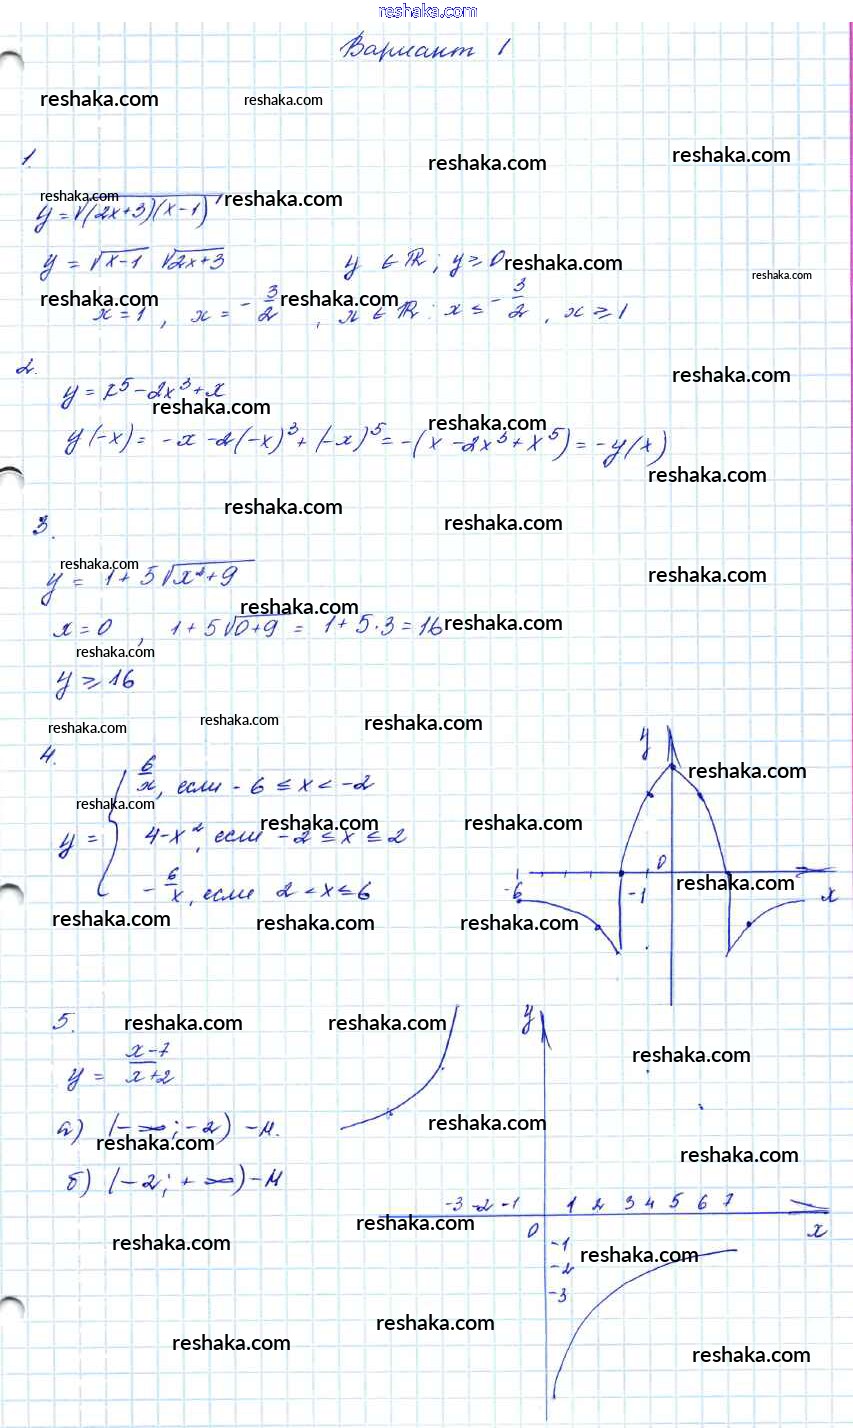 reshaka.com
Вариант 1
reshaka.com reshaka.com
reshaka.com reshaka.com
1.
reshaka.com reshaka.com
y = √(2x+3)(x-1)
y = √x-1 √2x+3 y ∈ ℝ ; y ≥ 0 reshaka.com
reshaka.com
reshaka.com reshaka.com
x = 1 , x = - 3/2 , x ∈ ℝ : x ≤ - 3/2 , x ≥ 1
2. reshaka.com
y = x⁵ - 2x³ + x
reshaka.com reshaka.com
y(-x) = -x - 2(-x)³ + (-x)⁵ = -(x - 2x³ + x⁵) = -y(x)
reshaka.com
reshaka.com reshaka.com
3.
reshaka.com
y = 1 + 5√x²+9 reshaka.com
reshaka.com reshaka.com
x = 0 , 1 + 5√0+9 = 1 + 5·3 = 16
reshaka.com
y ≥ 16
reshaka.com reshaka.com reshaka.com
4.
6/x, если -6 ≤ x < -2
reshaka.com
y = 4-x², если -2 ≤ x ≤ 2
reshaka.com reshaka.com
-6/x, если 2 < x ≤ 6
reshaka.com reshaka.com reshaka.com
y
reshaka.com
0
-6 -1 reshaka.com x
5. reshaka.com reshaka.com
y = x-7/x+2
а) (-∞; -2) - м.
reshaka.com
б) (-2; +∞) - м
reshaka.com
reshaka.com
y
reshaka.com
reshaka.com
reshaka.com
-3 -2 -1 1 2 3 4 5 6 7
reshaka.com
0 x
-1
reshaka.com
-2
-3
reshaka.com reshaka.com
reshaka.com